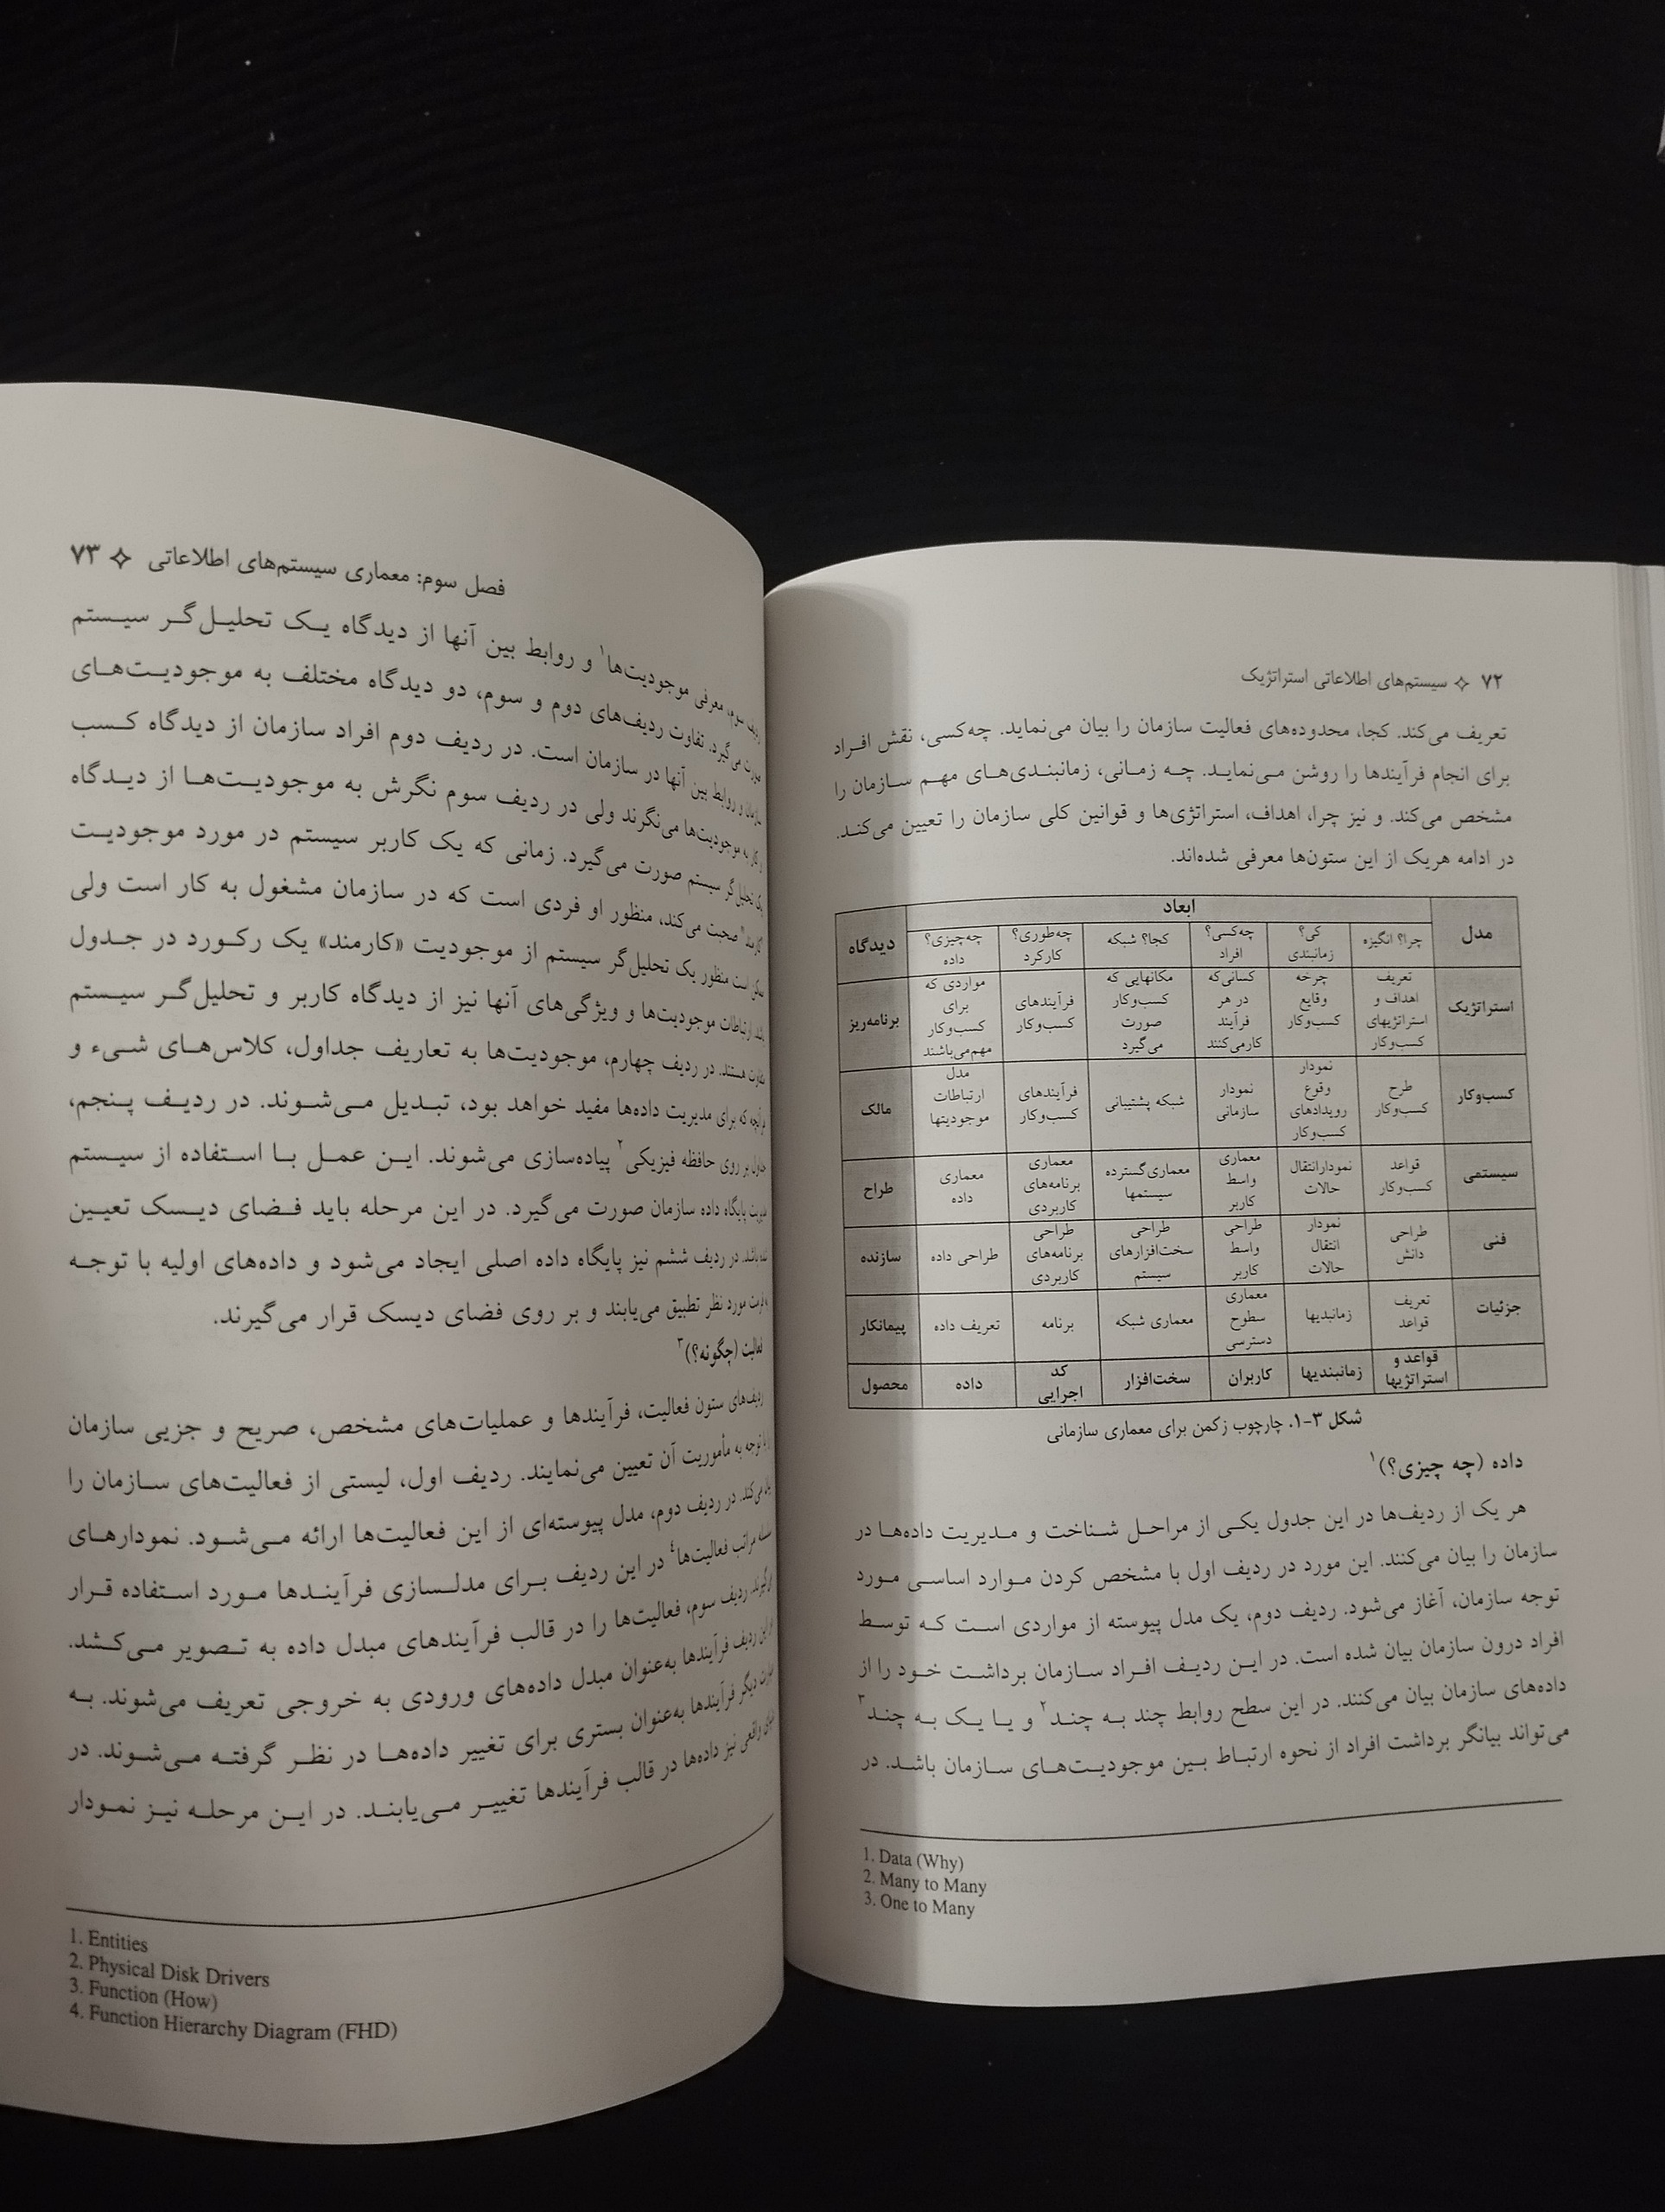 ۷۲ ✧ سیستم‌های اطلاعاتی استراتژیک
تعریف می‌کند. کجا، محدوده‌های فعالیت سازمان را بیان می‌نماید. چه‌کسی، نقش افراد
برای انجام فرآیندها را روشن می‌نماید. چه زمانی، زمانبندی‌های مهم سازمان را
مشخص می‌کند. و نیز چرا، اهداف، استراتژی‌ها و قوانین کلی سازمان را تعیین می‌کند.
در ادامه هریک از این ستون‌ها معرفی شده‌اند.
مدل ابعاد دیدگاه
چرا؟ انگیزه کی؟ زمانبندی چه‌کسی؟ افراد کجا؟ شبکه چه‌طوری؟ کارکرد چه‌چیزی؟ داده
استراتژیک تعریف اهداف و استراتژیهای کسب‌وکار چرخه وقایع کسب‌وکار کسانی‌که در هر فرآیند کارمی‌کنند مکانهایی که کسب‌وکار صورت می‌گیرد فرآیندهای کسب‌وکار مواردی که برای کسب‌وکار مهم‌می‌باشند برنامه‌ریز
کسب‌وکار طرح کسب‌وکار نمودار وقوع رویدادهای کسب‌وکار نمودار سازمانی شبکه پشتیبانی فرآیندهای کسب‌وکار مدل ارتباطات موجودیتها مالک
سیستمی قواعد کسب‌وکار نمودارانتقال حالات معماری واسط کاربر معماری‌گسترده سیستمها معماری برنامه‌های کاربردی معماری داده طراح
فنی طراحی دانش نمودار انتقال حالات طراحی واسط کاربر طراحی سخت‌افزارهای سیستم طراحی برنامه‌های کاربردی طراحی داده سازنده
جزئیات تعریف قواعد زمانبدیها معماری سطوح دسترسی معماری شبکه برنامه تعریف داده پیمانکار
قواعد و استراتژیها زمانبندیها کاربران سخت‌افزار کد اجرایی داده محصول
شکل ۳-۱. چارچوب زکمن برای معماری سازمانی
داده (چه چیزی؟)۱
هر یک از ردیف‌ها در این جدول یکی از مراحل شناخت و مدیریت داده‌ها در
سازمان را بیان می‌کنند. این مورد در ردیف اول با مشخص کردن موارد اساسی مورد
توجه سازمان، آغاز می‌شود. ردیف دوم، یک مدل پیوسته از مواردی است که توسط
افراد درون سازمان بیان شده است. در این ردیف افراد سازمان برداشت خود را از
داده‌های سازمان بیان می‌کنند. در این سطح روابط چند به چند۲ و یا یک به چند۳
می‌تواند بیانگر برداشت افراد از نحوه ارتباط بین موجودیت‌های سازمان باشد. در
1. Data (Why)
2. Many to Many
3. One to Many
فصل سوم: معماری سیستم‌های اطلاعاتی ✧ ۷۳
ردیف سوم، معرفی موجودیت‌ها۱ و روابط بین آنها از دیدگاه یک تحلیل‌گر سیستم
صورت می‌گیرد. تفاوت ردیف‌های دوم و سوم، دو دیدگاه مختلف به موجودیت‌های
سازمان و روابط بین آنها در سازمان است. در ردیف دوم افراد سازمان از دیدگاه کسب
و کار به موجودیت‌ها می‌نگرند ولی در ردیف سوم نگرش به موجودیت‌ها از دیدگاه
یک تحلیل‌گر سیستم صورت می‌گیرد. زمانی که یک کاربر سیستم در مورد موجودیت
صحبت می‌کند، منظور او فردی است که در سازمان مشغول به کار است ولی
ممکن است منظور یک تحلیل‌گر سیستم از موجودیت «کارمند» یک رکورد در جدول
باشد. ارتباطات موجودیت‌ها و ویژگی‌های آنها نیز از دیدگاه کاربر و تحلیل‌گر سیستم
متفاوت هستند. در ردیف چهارم، موجودیت‌ها به تعاریف جداول، کلاس‌های شیء و
هرآنچه که برای مدیریت داده‌ها مفید خواهد بود، تبدیل می‌شوند. در ردیف پنجم،
جداول بر روی حافظه فیزیکی۲ پیاده‌سازی می‌شوند. این عمل با استفاده از سیستم
مدیریت پایگاه داده سازمان صورت می‌گیرد. در این مرحله باید فضای دیسک تعیین
شده باشد. در ردیف ششم نیز پایگاه داده اصلی ایجاد می‌شود و داده‌های اولیه با توجه
به فرمت مورد نظر تطبیق می‌یابند و بر روی فضای دیسک قرار می‌گیرند.
فعالیت (چگونه؟)۳
ردیف‌های ستون فعالیت، فرآیندها و عملیات‌های مشخص، صریح و جزیی سازمان
را با توجه به مأموریت آن تعیین می‌نمایند. ردیف اول، لیستی از فعالیت‌های سازمان را
بیان می‌کند. در ردیف دوم، مدل پیوسته‌ای از این فعالیت‌ها ارائه می‌شود. نمودارهای
سلسله مراتب فعالیت‌ها۴ در این ردیف برای مدلسازی فرآیندها مورد استفاده قرار
می‌گیرند. ردیف سوم، فعالیت‌ها را در قالب فرآیندهای مبدل داده به تصویر می‌کشد.
در این ردیف فرآیندها به‌عنوان مبدل داده‌های ورودی به خروجی تعریف می‌شوند. به
عبارت دیگر فرآیندها به‌عنوان بستری برای تغییر داده‌ها در نظر گرفته می‌شوند. در
دنیای واقعی نیز داده‌ها در قالب فرآیندها تغییر می‌یابند. در این مرحله نیز نمودار
1. Entities
2. Physical Disk Drivers
3. Function (How)
4. Function Hierarchy Diagram (FHD)